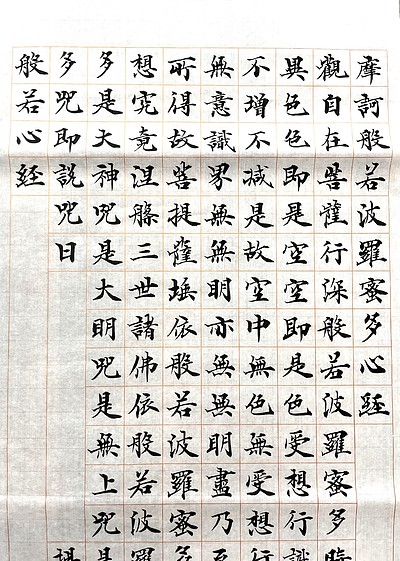 摩訶般若波羅蜜多心経
觀自在菩薩行深般若波羅蜜多時
異色色即是空空即是色受想行識
不增不減是故空中無色無受想行
無意識界無無明亦無無明盡乃至
所得故菩提薩埵依般若波羅蜜多
想究竟涅槃三世諸佛依般若波羅
多是大神咒是大明咒是無上咒是
多咒即說咒曰
般若心経